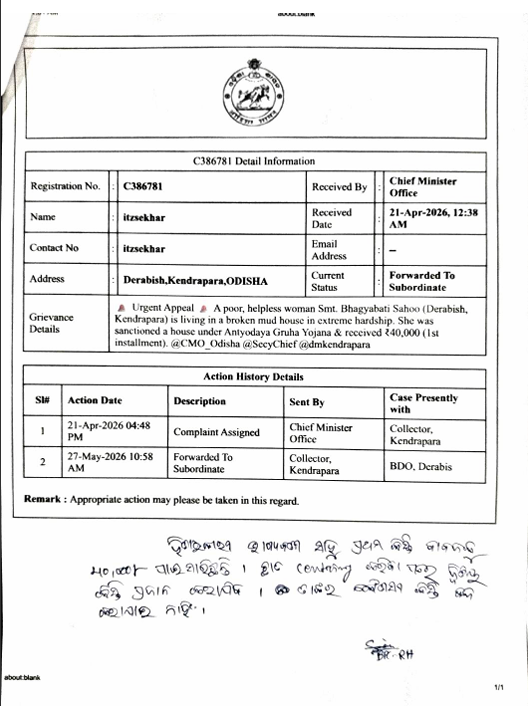 about:blank
C386781 Detail Information
Registration No. : C386781 Received By : Chief Minister Office
Name : itzsekhar Received Date : 21-Apr-2026, 12:38 AM
Contact No : itzsekhar Email Address : --
Address : Derabish,Kendrapara,ODISHA Current Status : Forwarded To Subordinate
Grievance Details : Urgent Appeal A poor, helpless woman Smt. Bhagyabati Sahoo (Derabish,
Kendrapara) is living in a broken mud house in extreme hardship. She was
sanctioned a house under Antyodaya Gruha Yojana & received ₹40,000 (1st
installment). @CMO_Odisha @SecyChief @dmkendrapara
Action History Details
Sl# Action Date Description Sent By Case Presently with
1 21-Apr-2026 04:48 PM Complaint Assigned Chief Minister Office Collector, Kendrapara
2 27-May-2026 10:58 AM Forwarded To Subordinate Collector, Kendrapara BDO, Derabis
Remark : Appropriate action may please be taken in this regard.
ପ୍ରଥମ କିସ୍ତି
୪୦,୦୦୦ ପାଇସାରିଛନ୍ତି । centering ପରେ ଦ୍ୱିତୀୟ
କିସ୍ତି ପ୍ରଦାନ । କିସ୍ତି
ନାହିଁ ।
about:blank
1/1